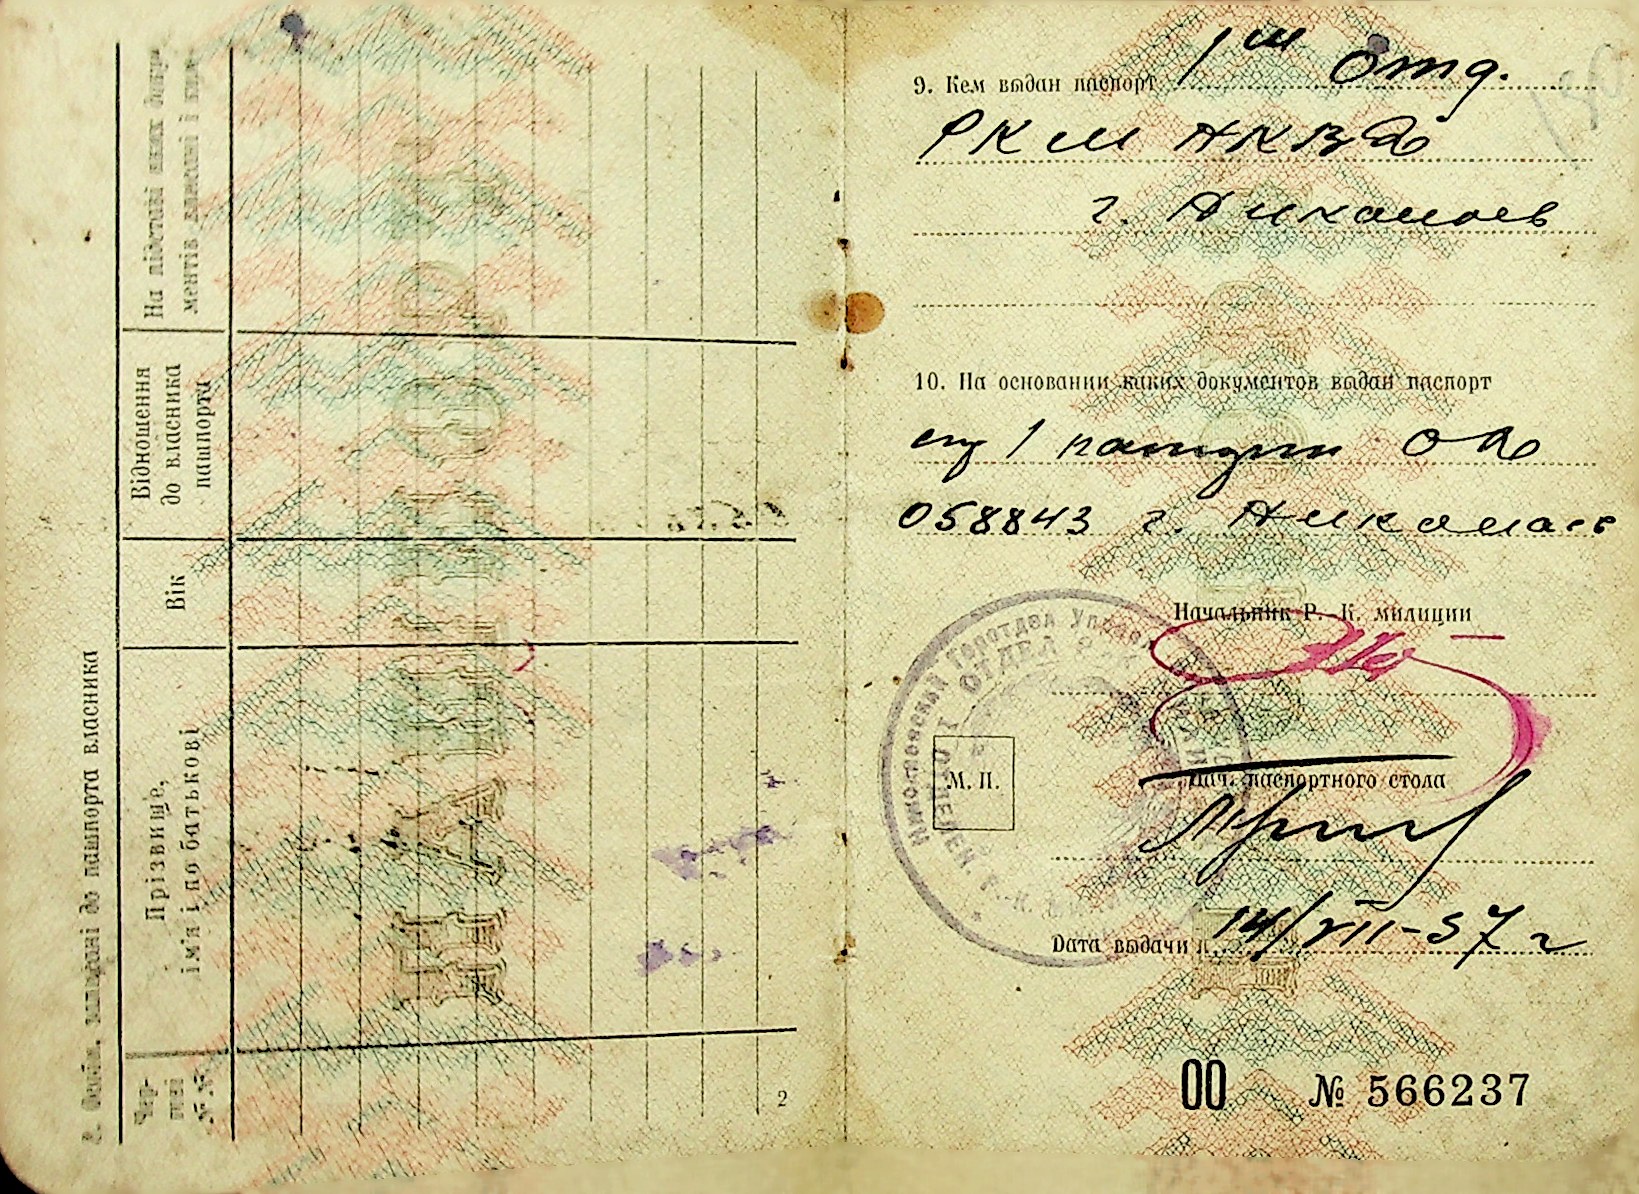 8. Особи, вписані до пашпорта власника
Чер-
гові
№ №
Прізвище,
ім'я і по батькові
Вік
Відношення
до власника
пашпорта
На підставі яких доку-
ментів вписані і ким
2
9. Кем выдан паспорт 1ым Отд.
РКМ НКВД
г. Николаев
10. На основании каких документов выдан паспорт
1 ОЮ
058843 г. Николаев
Начальник Р.-К. милиции
М. П.
Нач. паспортного стола
Дата выдачи 14/VII-37 г
ОТДЕЛ Р.-К.
00 № 566237